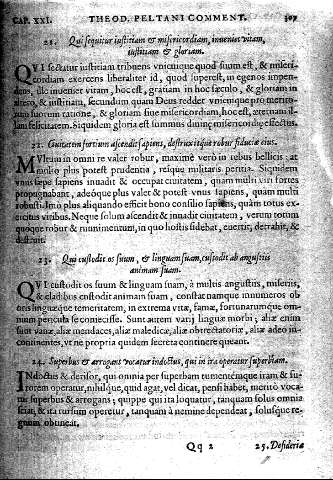 CAP. XXI. THEOD. PELTANI COMMENT. 307
21. Qui sequitur iustitiam & misericordiam, inueniet vitam,
iustitiam & gloriam.
QVI sectatur iustitiam tribuens vnicuique quod suum est, & miseri-
cordiam exercens liberaliter id, quod superest, in egenos impen-
dens, ille inueniet vitam, hoc est, gratiam in hoc sæculo, & gloriam in
altero, & iustitiam, secundum quam Deus reddet vnicuique pro merito-
rum suorum ratione, & gloriam siue misericordiam, hoc est, æternam il-
lam felicitatem. Siquidem gloria est summus diuinæ misericordiæ effectus.
22. Ciuitatem fortium ascendit sapiens, destruxitque robur fiduciæ eius.
MVltum in omni re valet robur, maximè verò in rebus bellicis: at
multò plus potest prudentia, reique militaris peritia. Siquidem
vnus sæpe sapiens inuadit & occupat ciuitatem, quam multi viri fortes
propugnabant, adeóque plus valet & potest vnus sapiens, quam multi
robusti. Imò plus aliquando efficit bono consilio sapiens, quàm totus ex-
ercitus viribus. Neque solum ascendit & inuadit ciuitatem, verum totum
quoque robur & munimentum, in quo hostis fidebat, euertit, detrahit, &
destruit.
23. Qui custodit os suum, & linguam suam, custodit ab angustiis
animam suam.
QVI custodit os suum & linguam suam, à multis angustiis, miseriis,
& cladibus custodit animam suam, constat namque innumeros ob
oris linguæque temeritatem, in extrema vitæ, famæ, fortunarumque om-
nium pericula se coniecisse. Sunt autem varij linguæ morbi; aliæ enim
sunt vanæ, aliæ mendaces, aliæ maledicæ, aliæ obtrectatoriæ, aliæ adeo in-
continentes, vt ne propria quidem secreta continere queant.
24. Superbus & arrogans vocatur indoctus, qui in ira operatur superbiam.
INdoctus & derisor, qui omnia per superbam tumentémque iram & fu-
rorem operatur, nihilque, quid agat, vel dicat, pensi habet, meritò voca-
tur superbus & arrogans; quippe qui ita loquatur, tanquam solus omnia
sciat, & ita rursum operetur, tanquam à nemine dependeat, solusque re-
gnum obtineat.
Qq 2 25. Desideria